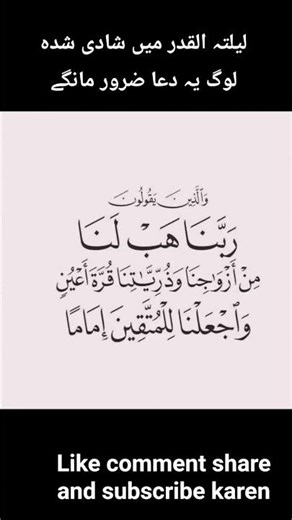 لیلتہ القدر میں شادی شدہ
لوگ یہ دعا ضرور مانگے
وَالَّذِينَ يَقُولُونَ
رَبَّنَا هَبْ لَنَا
مِنْ أَزْوَاجِنَا وَذُرِّيَّاتِنَا قُرَّةَ أَعْيُنٍ
وَاجْعَلْنَا لِلْمُتَّقِينَ إِمَامًا
Like comment share
and subscribe karen